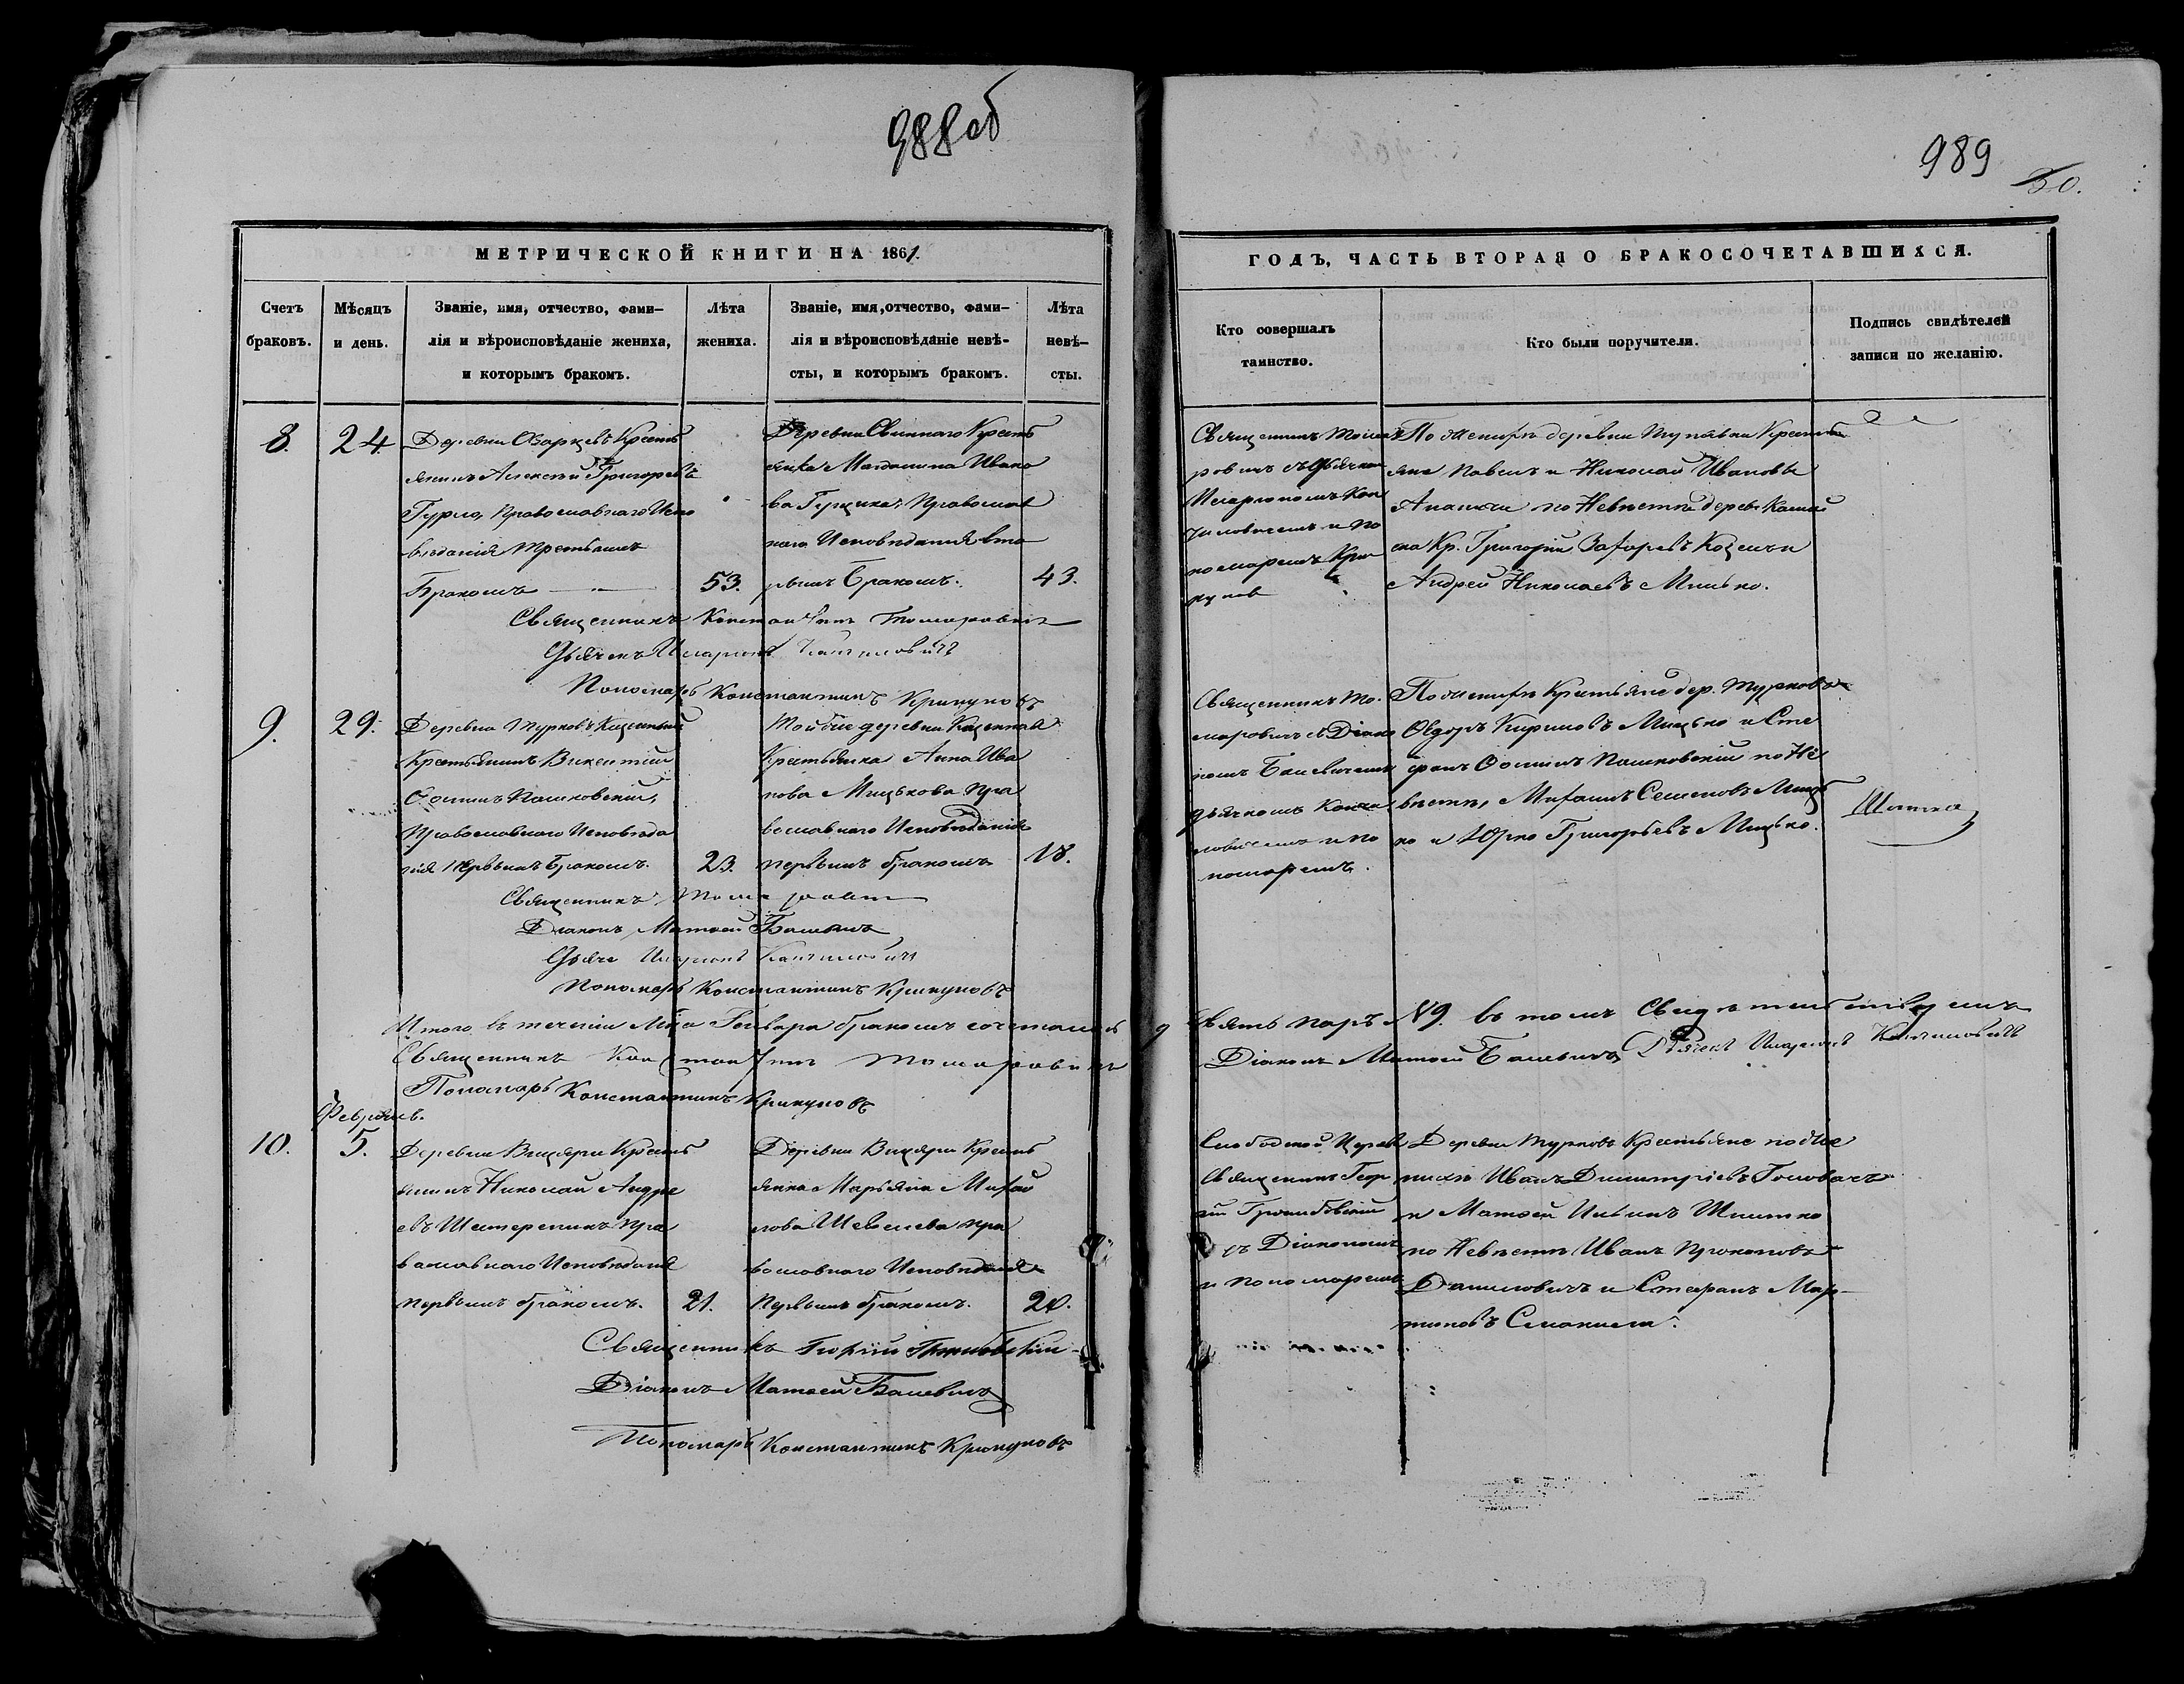 988об
989
30.
МЕТРИЧЕСКОЙ КНИГИ НА 1861.
Счетъ браковъ.
Мѣсяцъ и день.
Званіе, имя, отчество, фами-
лія и вѣроисповѣданіе жениха,
и которымъ бракомъ.
Лѣта жениха.
Званіе, имя, отчество, фами-
лія и вѣроисповѣданіе невѣ-
сты, и которымъ бракомъ.
Лѣта невѣ-
сты.
ГОДЪ, ЧАСТЬ ВТОРАЯ О БРАКОСОЧЕТАВШИХСЯ.
Кто совершалъ
таинство.
Кто были поручители.
Подпись свидѣтелей
записи по желанію.
8.
24
Деревни Озарцевъ Кресть
янинъ Алексѣй Григорьевъ
Гурло, Православнаго Испо
вѣданія третьимъ
Бракомъ
53.
Деревни Свиннаго Кресть
янка Магдалина Ивано
ва Герцика, Православ
наго Исповѣданія вто
рымъ Бракомъ.
43.
Священникъ Тома
ровичъ съ Дьячком
Иларіономъ Кон
чиловичемъ и по
номаремъ Кри
кунов
По Женихѣ деревни Крестья
яне Павелъ и Николай Ивановы
по Невѣстѣ дерев.
Кр. Григорій и
Андрей Николаевъ Мицько.
Священникъ Константинъ Томаровичъ
Дьячекъ Иларіонъ Кончиловичъ
Пономарь Константинъ Крикуновъ
9.
29.
Деревни Турковъ Казенный
Крестьянинъ Викентій
Осиповъ Пашковскій,
Православнаго Исповѣда
нія первымъ Бракомъ.
23.
Той же деревни Казенная
Крестьянка Анна Ива
нова Мицькова Пра
вославнаго Исповѣданія
первымъ бракомъ
18.
Священникъ То-
маровичъ съ Діако
номъ Балевичемъ
дьячкомъ Кончи
ловичемъ и по
номаремъ.
По Женихѣ Крестьяне дер. Турковъ
Ѳедоръ Кириловъ Мицько и Сте
фанъ Осиповъ Пашковскій по Не
вѣстѣ, Михаилъ Семеновъ Мицъ
ко и Юрко Григорьевъ Мицько.
Священникъ Томаровичъ
Діаконъ Матѳей Балевичъ
Дьяче Иларіонъ Кончиловичъ
Пономарь Константинъ Крикуновъ
Итого въ теченіи Мца Генваря бракомъ сочеталось 9
девять паръ №9. въ томъ Свидѣтельствуемъ
Священникъ Константинъ Томаровичъ
Діаконъ Матѳей Балевичъ Дьячекъ Иларіонъ Кончиловичъ
Пономарь Константинъ Крикуновъ
Февраль.
10.
5.
Деревни Вицяри Кресть
янинъ Николай Андре
евъ Шатерникъ пра
вославнаго Исповѣданія
первымъ бракомъ.
21.
Деревни Вицяри Кресть
янка Марьяна Михай
лова Шевелева пра
вославнаго Исповѣданія
Первымъ бракомъ.
20.
Слободской Церкви
Священникъ Геор
гій
съ Діакономъ
и пономаремъ
Деревни Турковъ Крестьяне по Же
нихѣ Иванъ Димитріевъ Головачъ
и Матѳей
по Невѣстѣ Иванъ Прокоповъ
Даниловичъ и Стефанъ Мар-
тиновъ
Священникъ Георгій
Діаконъ Матѳей Балевичъ
Пономарь Константинъ Крикуновъ